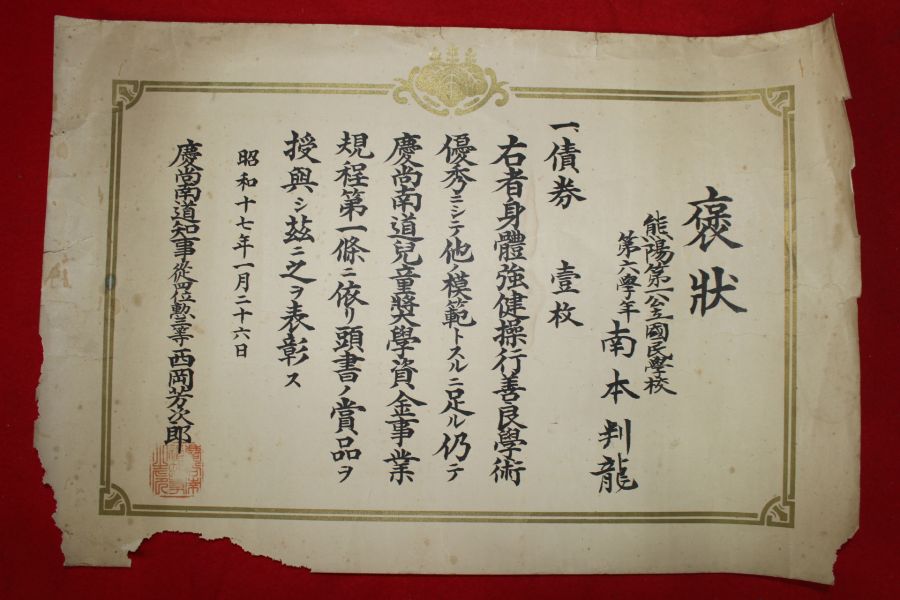 褒狀
熊陽第一公立國民學校
第六學年 南本判龍
一、債券 壹枚
右者身體強健操行善良學術
優秀ニシテ他ノ模範トスルニ足ル仍テ
慶尚南道兒童奬學資金事業
規程第一條ニ依リ頭書ノ賞品ヲ
授與シ玆ニ之ヲ表彰ス
昭和十七年一月二十六日
慶尚南道知事從四位勲三等西岡芳次郎